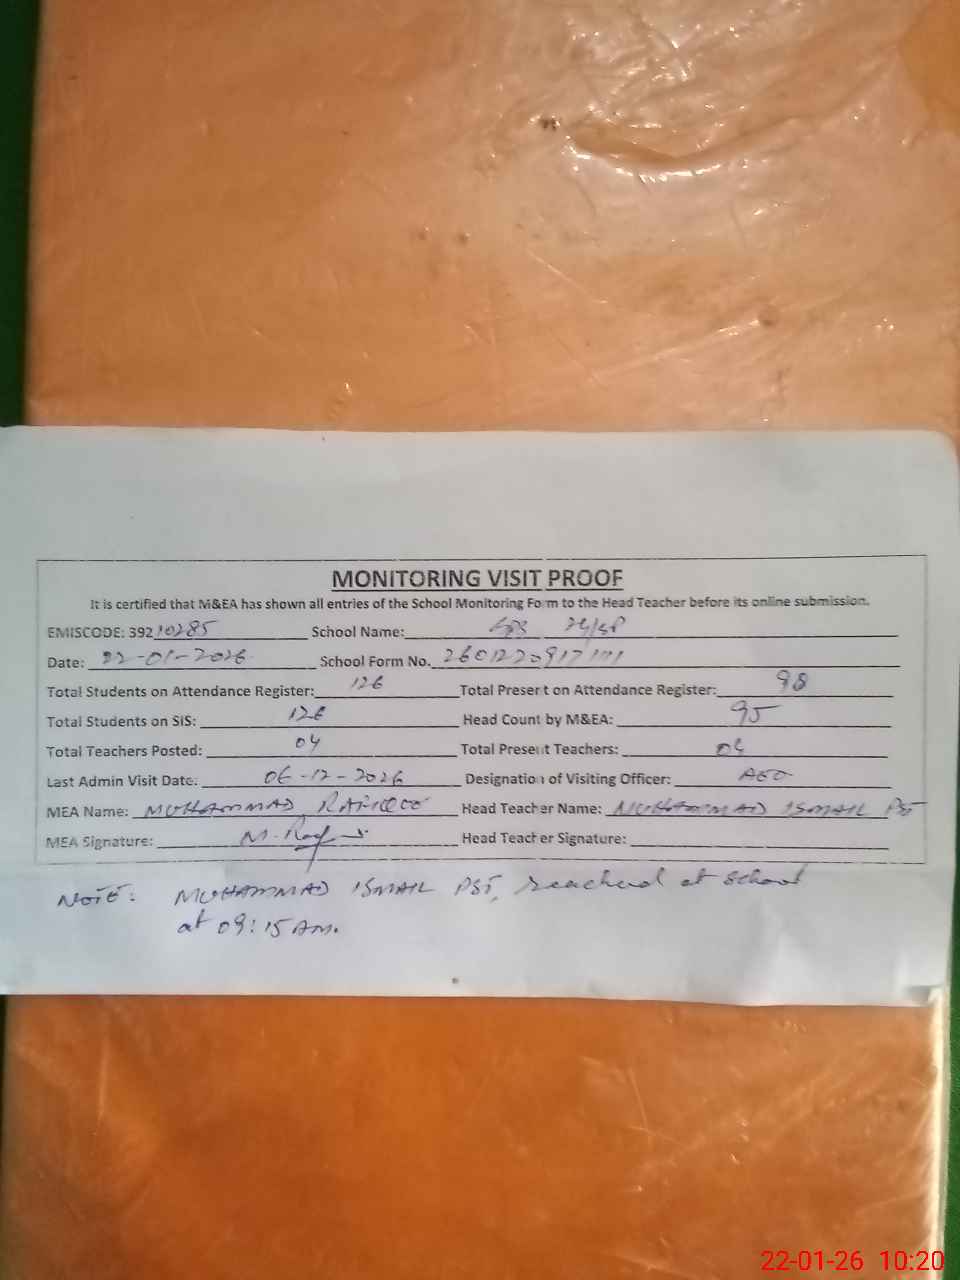 MONITORING VISIT PROOF
It is certified that M&EA has shown all entries of the School Monitoring Form to the Head Teacher before its online submission.
EMISCODE: 39210285 School Name: GPS
Date: 22-01-2026 School Form No. 260122091711
Total Students on Attendance Register: 126 Total Present on Attendance Register: 98
Total Students on SIS: 126 Head Count by M&EA: 95
Total Teachers Posted: 04 Total Present Teachers: 04
Last Admin Visit Date: 06-12-2026 Designation of Visiting Officer: AEO
MEA Name: MUHAMMAD RAFIQUE Head Teacher Name: MUHAMMAD ISMAIL PST
MEA Signature: M. Head Teacher Signature:
NOTE: MUHAMMAD ISMAIL PST, reached at school
at 09:15 AM.
22-01-26 10:20